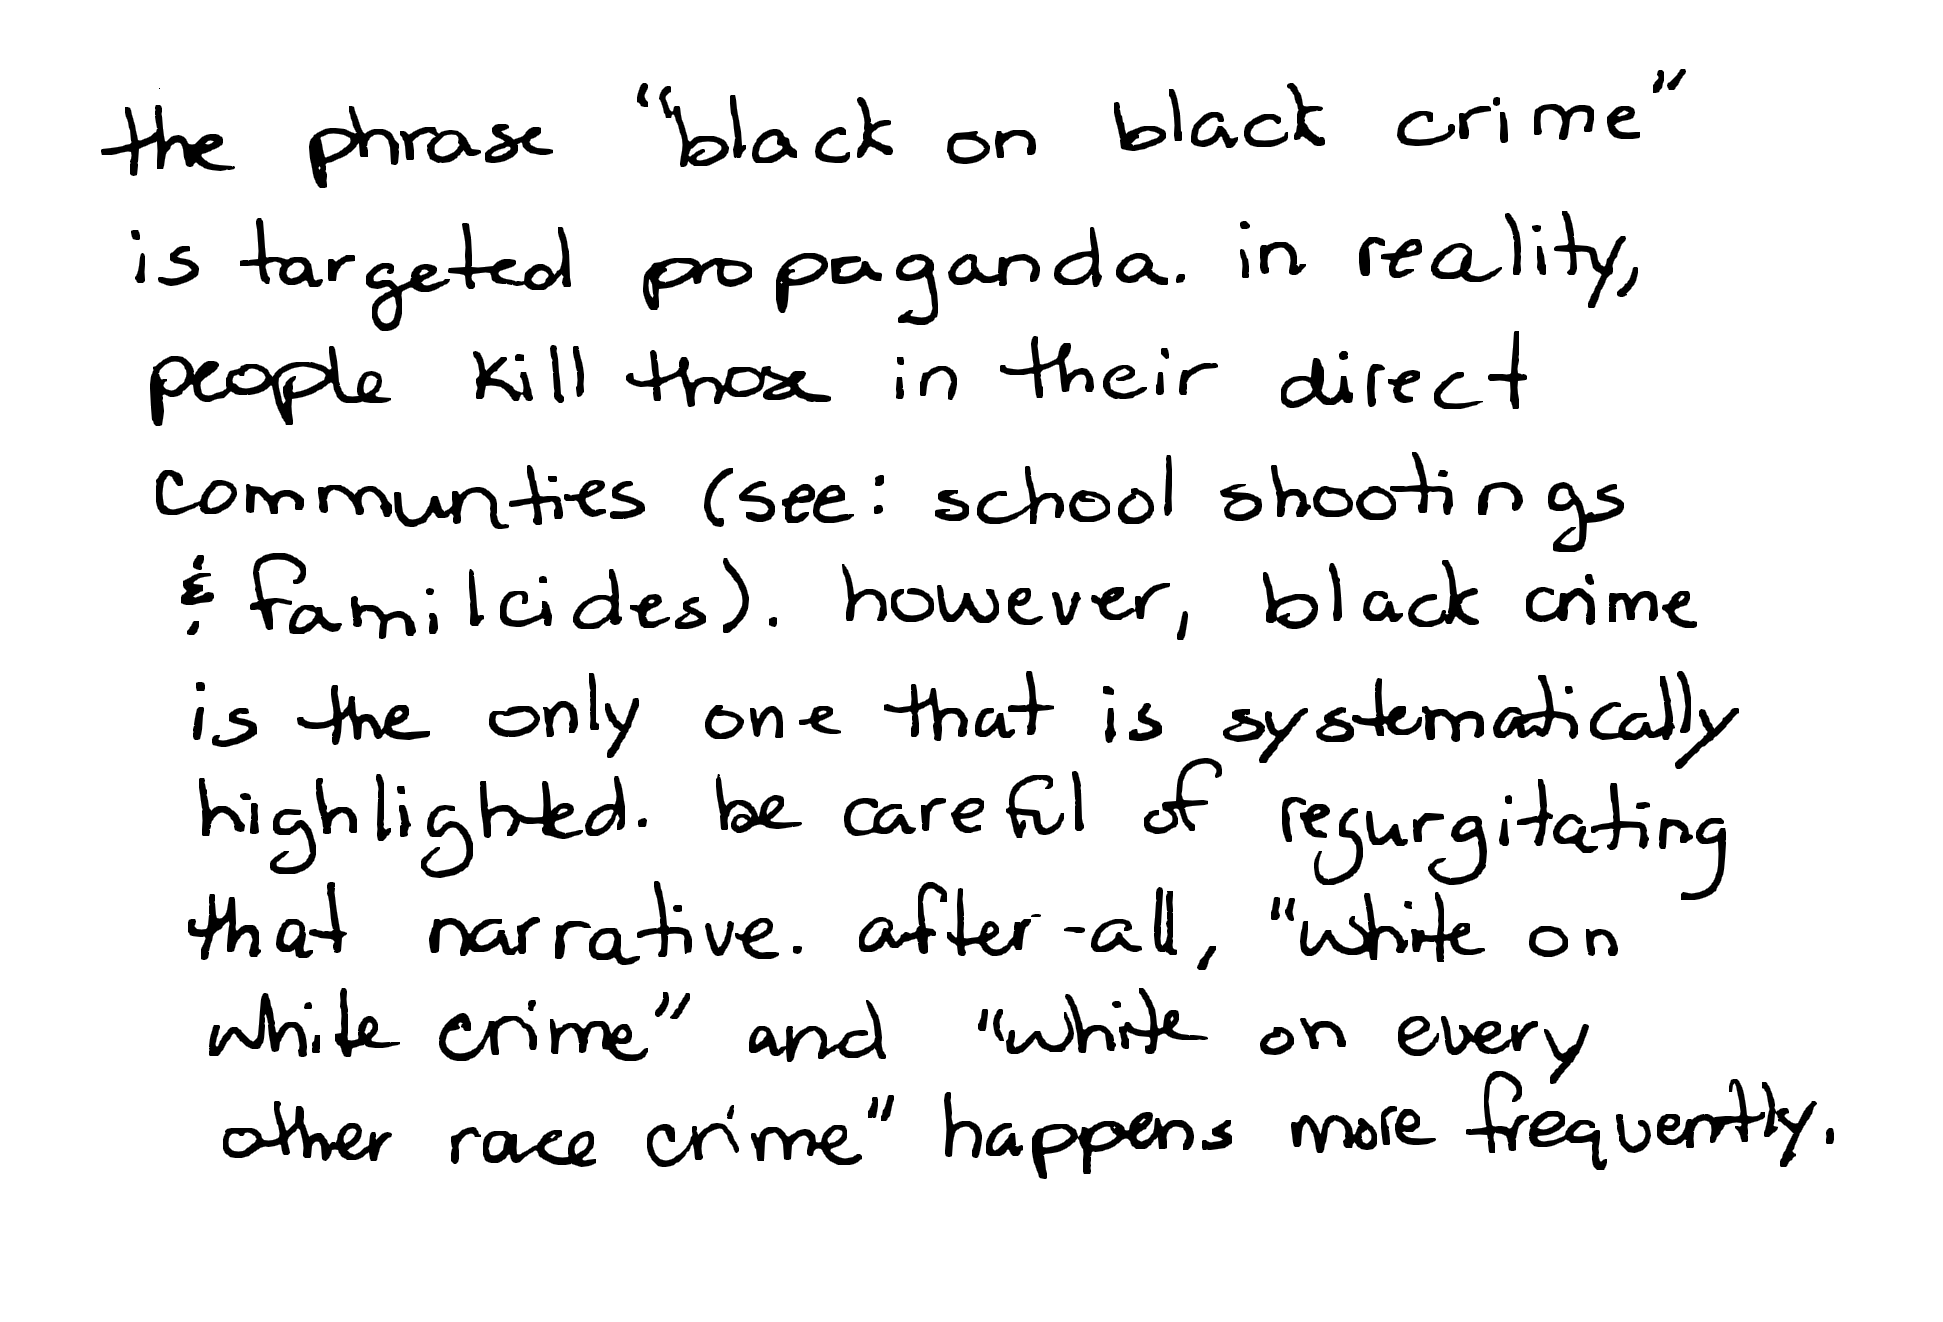 the phrase "black on black crime"
is targeted propaganda. in reality,
people kill those in their direct
communties (see: school shootings
& familcides). however, black crime
is the only one that is systematically
highlighted. be careful of regurgitating
that narrative. after-all, "white on
white crime" and "white on every
other race crime" happens more frequently.